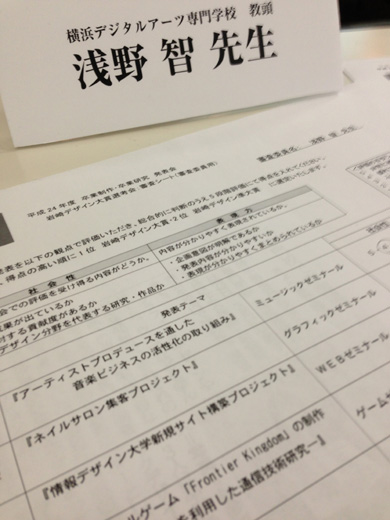 横浜デジタルアーツ専門学校　教頭
浅野 智 先生
平成24年度 卒業制作・卒業研究 発表会
岩崎デザイン大賞選考会 審査シート（審査委員用）
審査委員名： 浅野 智 先生
発表を以下の観点で評価いただき、総合的に判断のうえ5段階評価にて得点を入れてください。
得点の高い順に1位 岩崎デザイン大賞・2位 岩崎デザイン優秀賞 に選定いたします。
社会性
表現力
会での評価を受け得る内容がどうか。
内容が分かりやすく表現されているか。
果が出ているか
・企画意図が明確であるか
対する貢献度があるか
・発表内容が分かりやすいか
デザイン分野を代表する研究・作品か
・表現が分かりやすくまとめられているか
発表テーマ
『アーティストプロデュースを通した
音楽ビジネスの活性化の取り組み』
ミュージックゼミナール
『ネイルサロン集客プロジェクト』
グラフィックゼミナール
『情報デザイン大学新規サイト構築プロジェクト』
WEBゼミナール
ルゲーム「Frontier Kingdom」の制作
を利用した通信技術研究－』
ゲームゼ